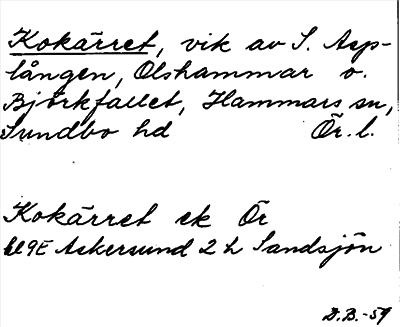 Kokärret, vik av S. Asp-
lången, Olshammar o.
Björkfallet, Hammars sn,
Sundbo hd Ör. l.
Kokärret ek Ör
9E Askersund 2 h Sandsjön
D.B.-59